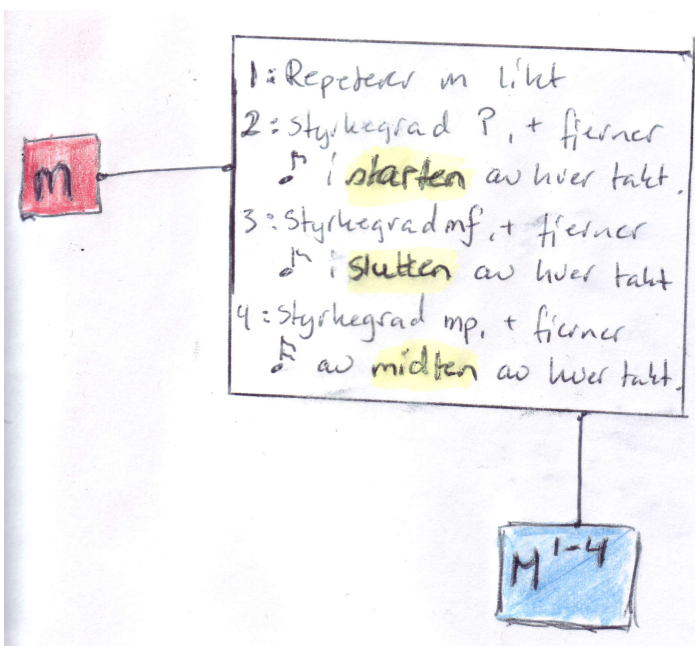 m
1: Repeterer m likt
2: Styrkegrad P, + fjerner
♪ i starten av hver takt.
3: Styrkegrad mf, + fjerner
♪ i slutten av hver takt
4: Styrkegrad mp, + fjerner
♪ av midten av hver takt.
M 1-4